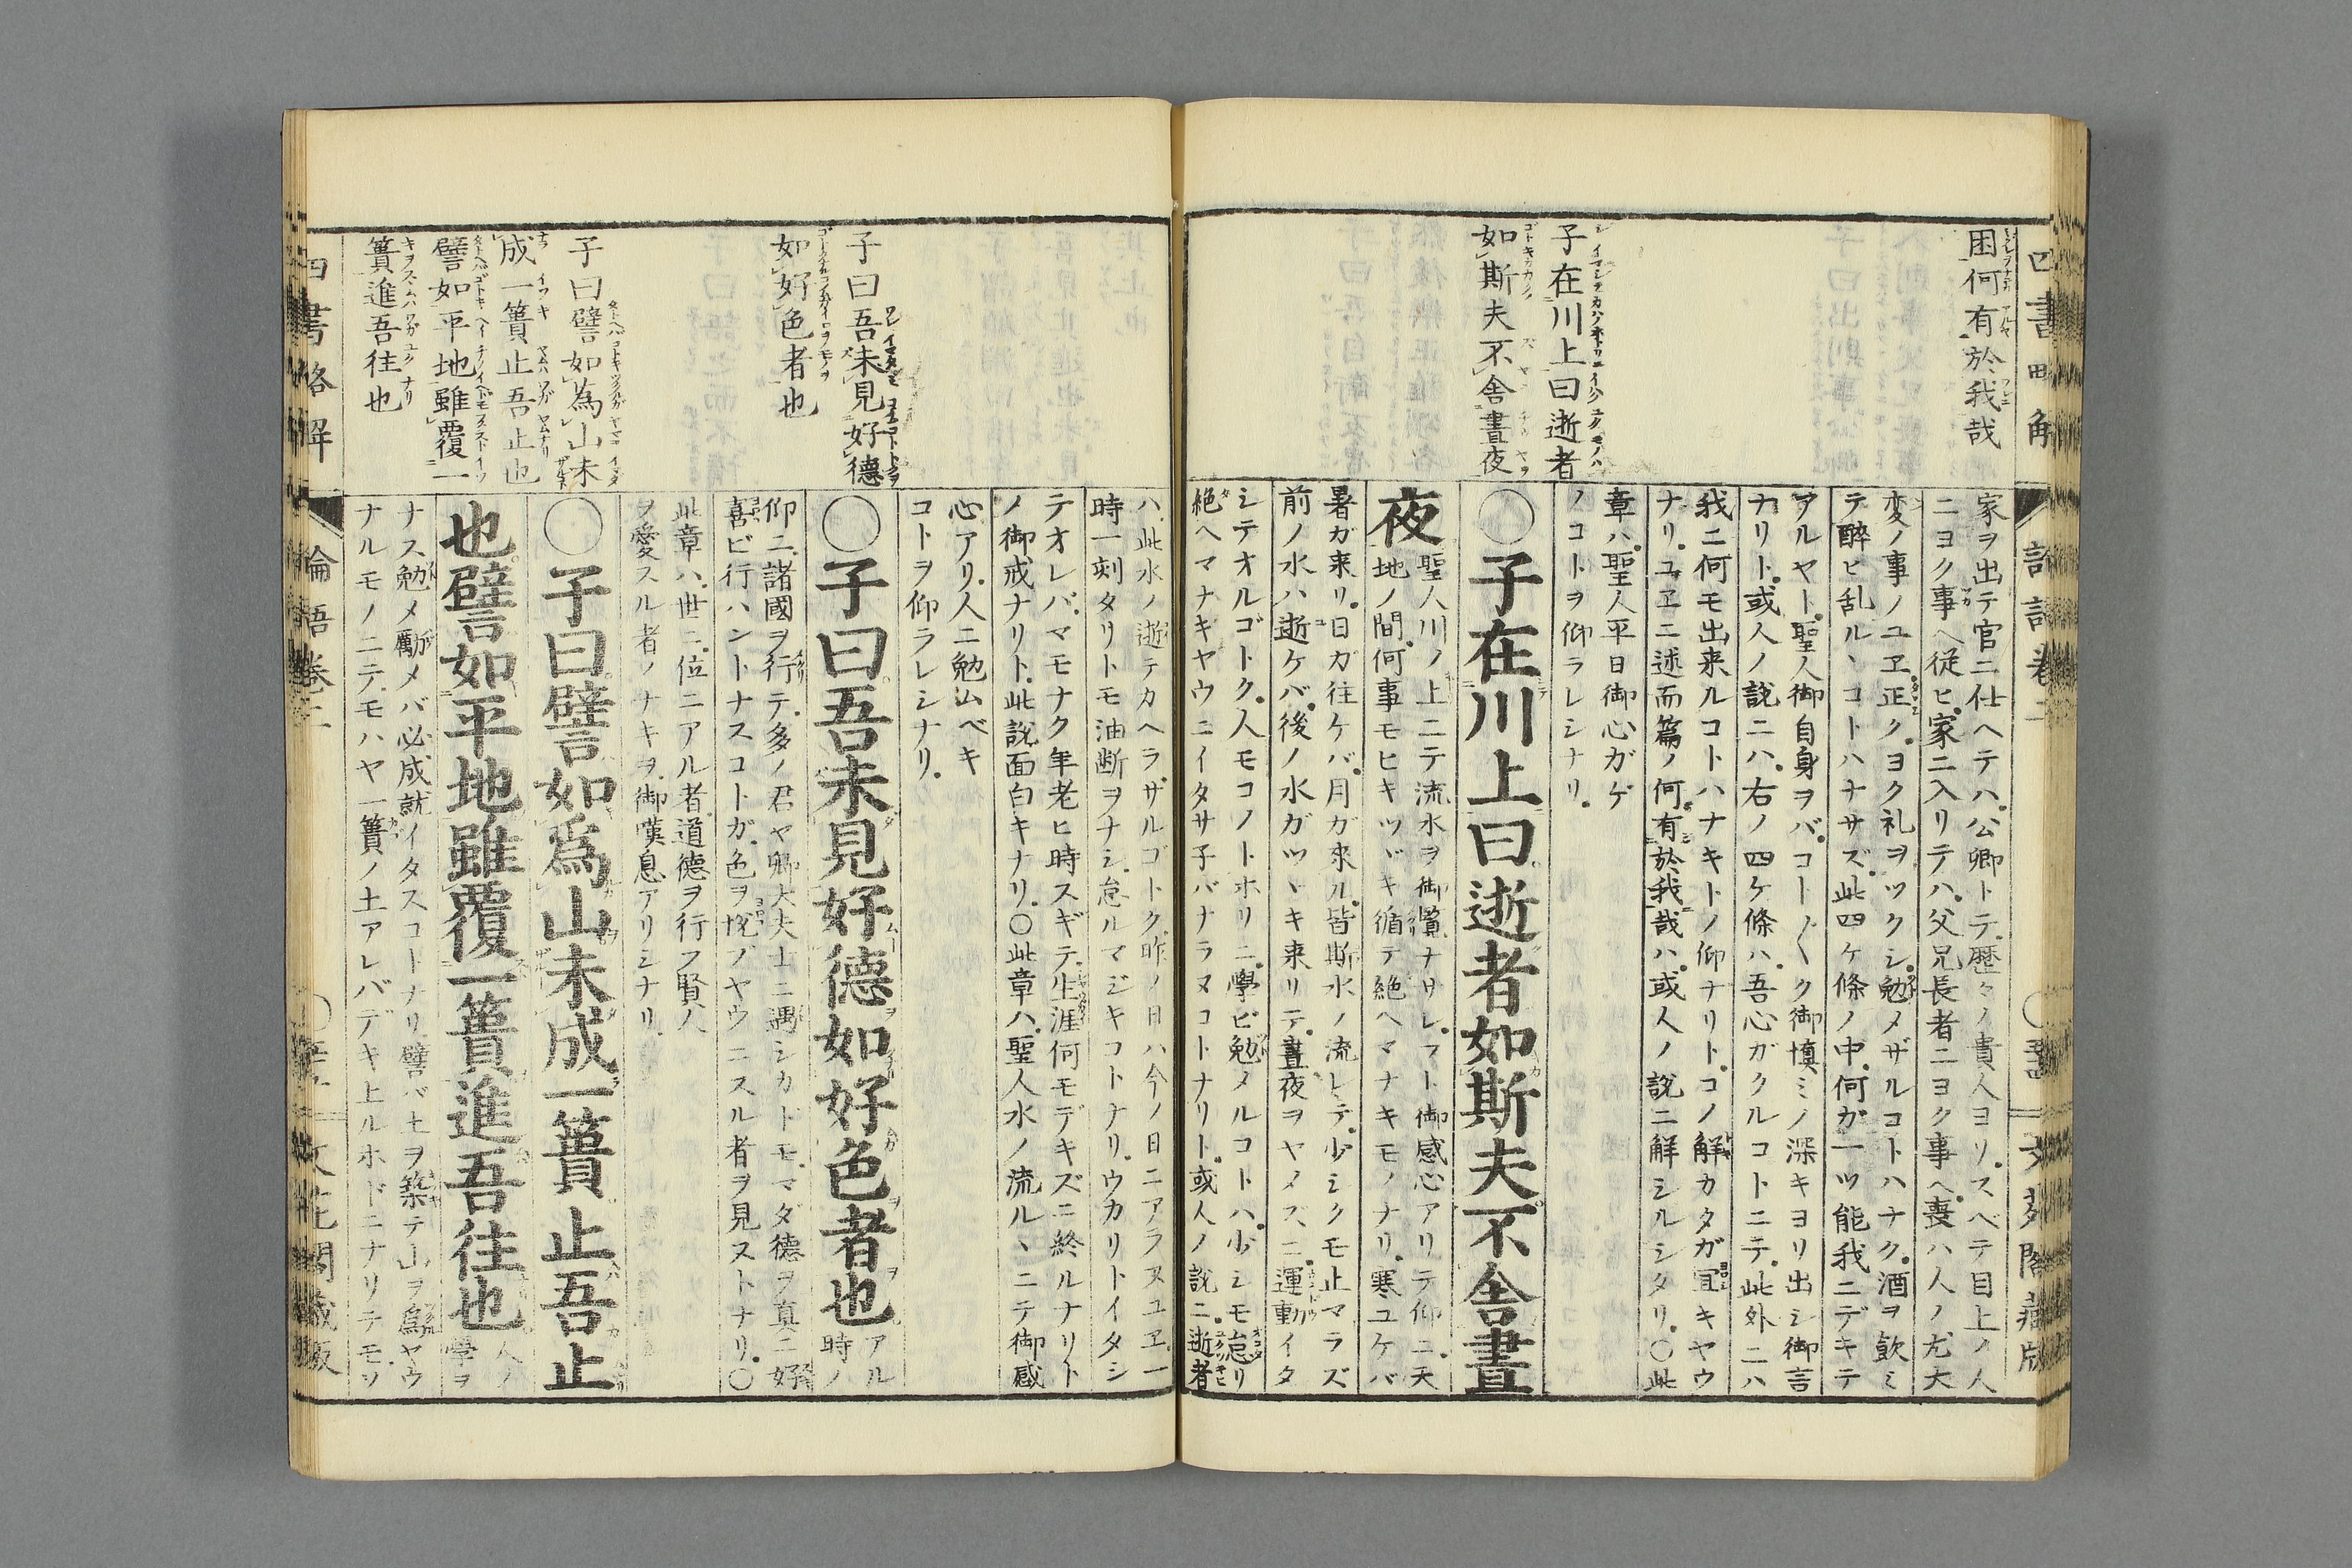 困何有於我哉
子在川上曰逝者
如斯夫不舍晝夜
家ヲ出テ官ニ仕ヘテハ公卿トテ歷々ノ貴人ヨリスベテ目上ノ人
ニヨク事ヘ従ヒ家ニ入リテハ父兄長者ニヨク事ヘ喪ハ人ノ尤大
変ノ事ノユヱ正クヨク礼ヲツクシ勉メザルコトハナク酒ヲ飲ミ
テ醉ヒ乱ルヽコトハナサズ此四ケ條ノ中何ガ一ツ能我ニデキテ
アルヤト聖人御自身ヲバコト〴〵ク御愼ミノ深キヨリ出シ御言
ナリト或人ノ說ニハ右ノ四ケ條ハ吾心ガクルコトニテ此外ニハ
我ニ何モ出来ルコトハナキトノ仰ナリトコノ解カタガ宜キヤウ
ナリユヱニ述而篇ノ何有於我哉ハ或人ノ說ニ解シルシタリ○此
章ハ聖人平日御心ガゲ
ノコトヲ仰ラレシナリ
○子在川上曰逝者如斯夫不舍晝
夜
聖人川ノ上ニテ流水ヲ御覽ナサレフト御感心アリテ仰ニ天
地ノ間何事モヒキツヾキ循テ絶ヘマナキモノナリ寒ユケバ
暑ガ来リ日ガ往ケバ月ガ來ル皆斯水ノ流レテ少シクモ止マラズ
前ノ水ハ逝ケバ後ノ水ガツヾキ来リテ晝夜ヲヤメズニ運動イタ
シテオルゴトク人モコノトホリニ學ビ勉メルコトハ少シモ怠リ
絶ヘマナキヤウニイタサ子バナラヌコトナリト或人ノ說ニ逝者
子曰吾未見好德
如好色者也
子曰譬如為山未
成一簣止吾止也
譬如平地雖覆一
簣進吾往也
ハ此水ノ逝テカヘラザルゴトク昨ノ日ハ今ノ日ニアラヌユヱ一
時一刻タリトモ油断ヲナシ怠ルマジキコトナリウカリトイタシ
テオレバマモナク年老ヒ時スギテ生涯何モデキズニ終ルナリト
ノ御戒ナリト此說面白キナリ○此章ハ聖人水ノ流ルヽニテ御感
心アリ人ニ勉ムベキ
コトヲ仰ラレシナリ
○子曰吾未見好德如好色者也
アル
時ノ
仰ニ諸國ヲ行テ多ノ君ヤ卿大夫士ニ遇シカドモマダ德ヲ真ニ好
喜ビ行ハントナスコトガ色ヲ悅ブヤウニスル者ヲ見ヌトナリ○
此章ハ世ニ位ニアル者道德ヲ行フ賢人
ヲ愛スル者ノナキヲ御嘆息アリシナリ
○子曰譬如爲山未成一簣止吾止
也譬如平地雖覆一簣進吾往也
人ノ
學ヲ
ナス勉メ勵メバ必成就イタスコトナリ譬バ土ヲ築テ山ヲ爲ヤウ
ナルモノニテモハヤ一簣ノ土アレバデキ上ルホドニナリテモソ
四書略解
論語卷二
文花閣蔵版